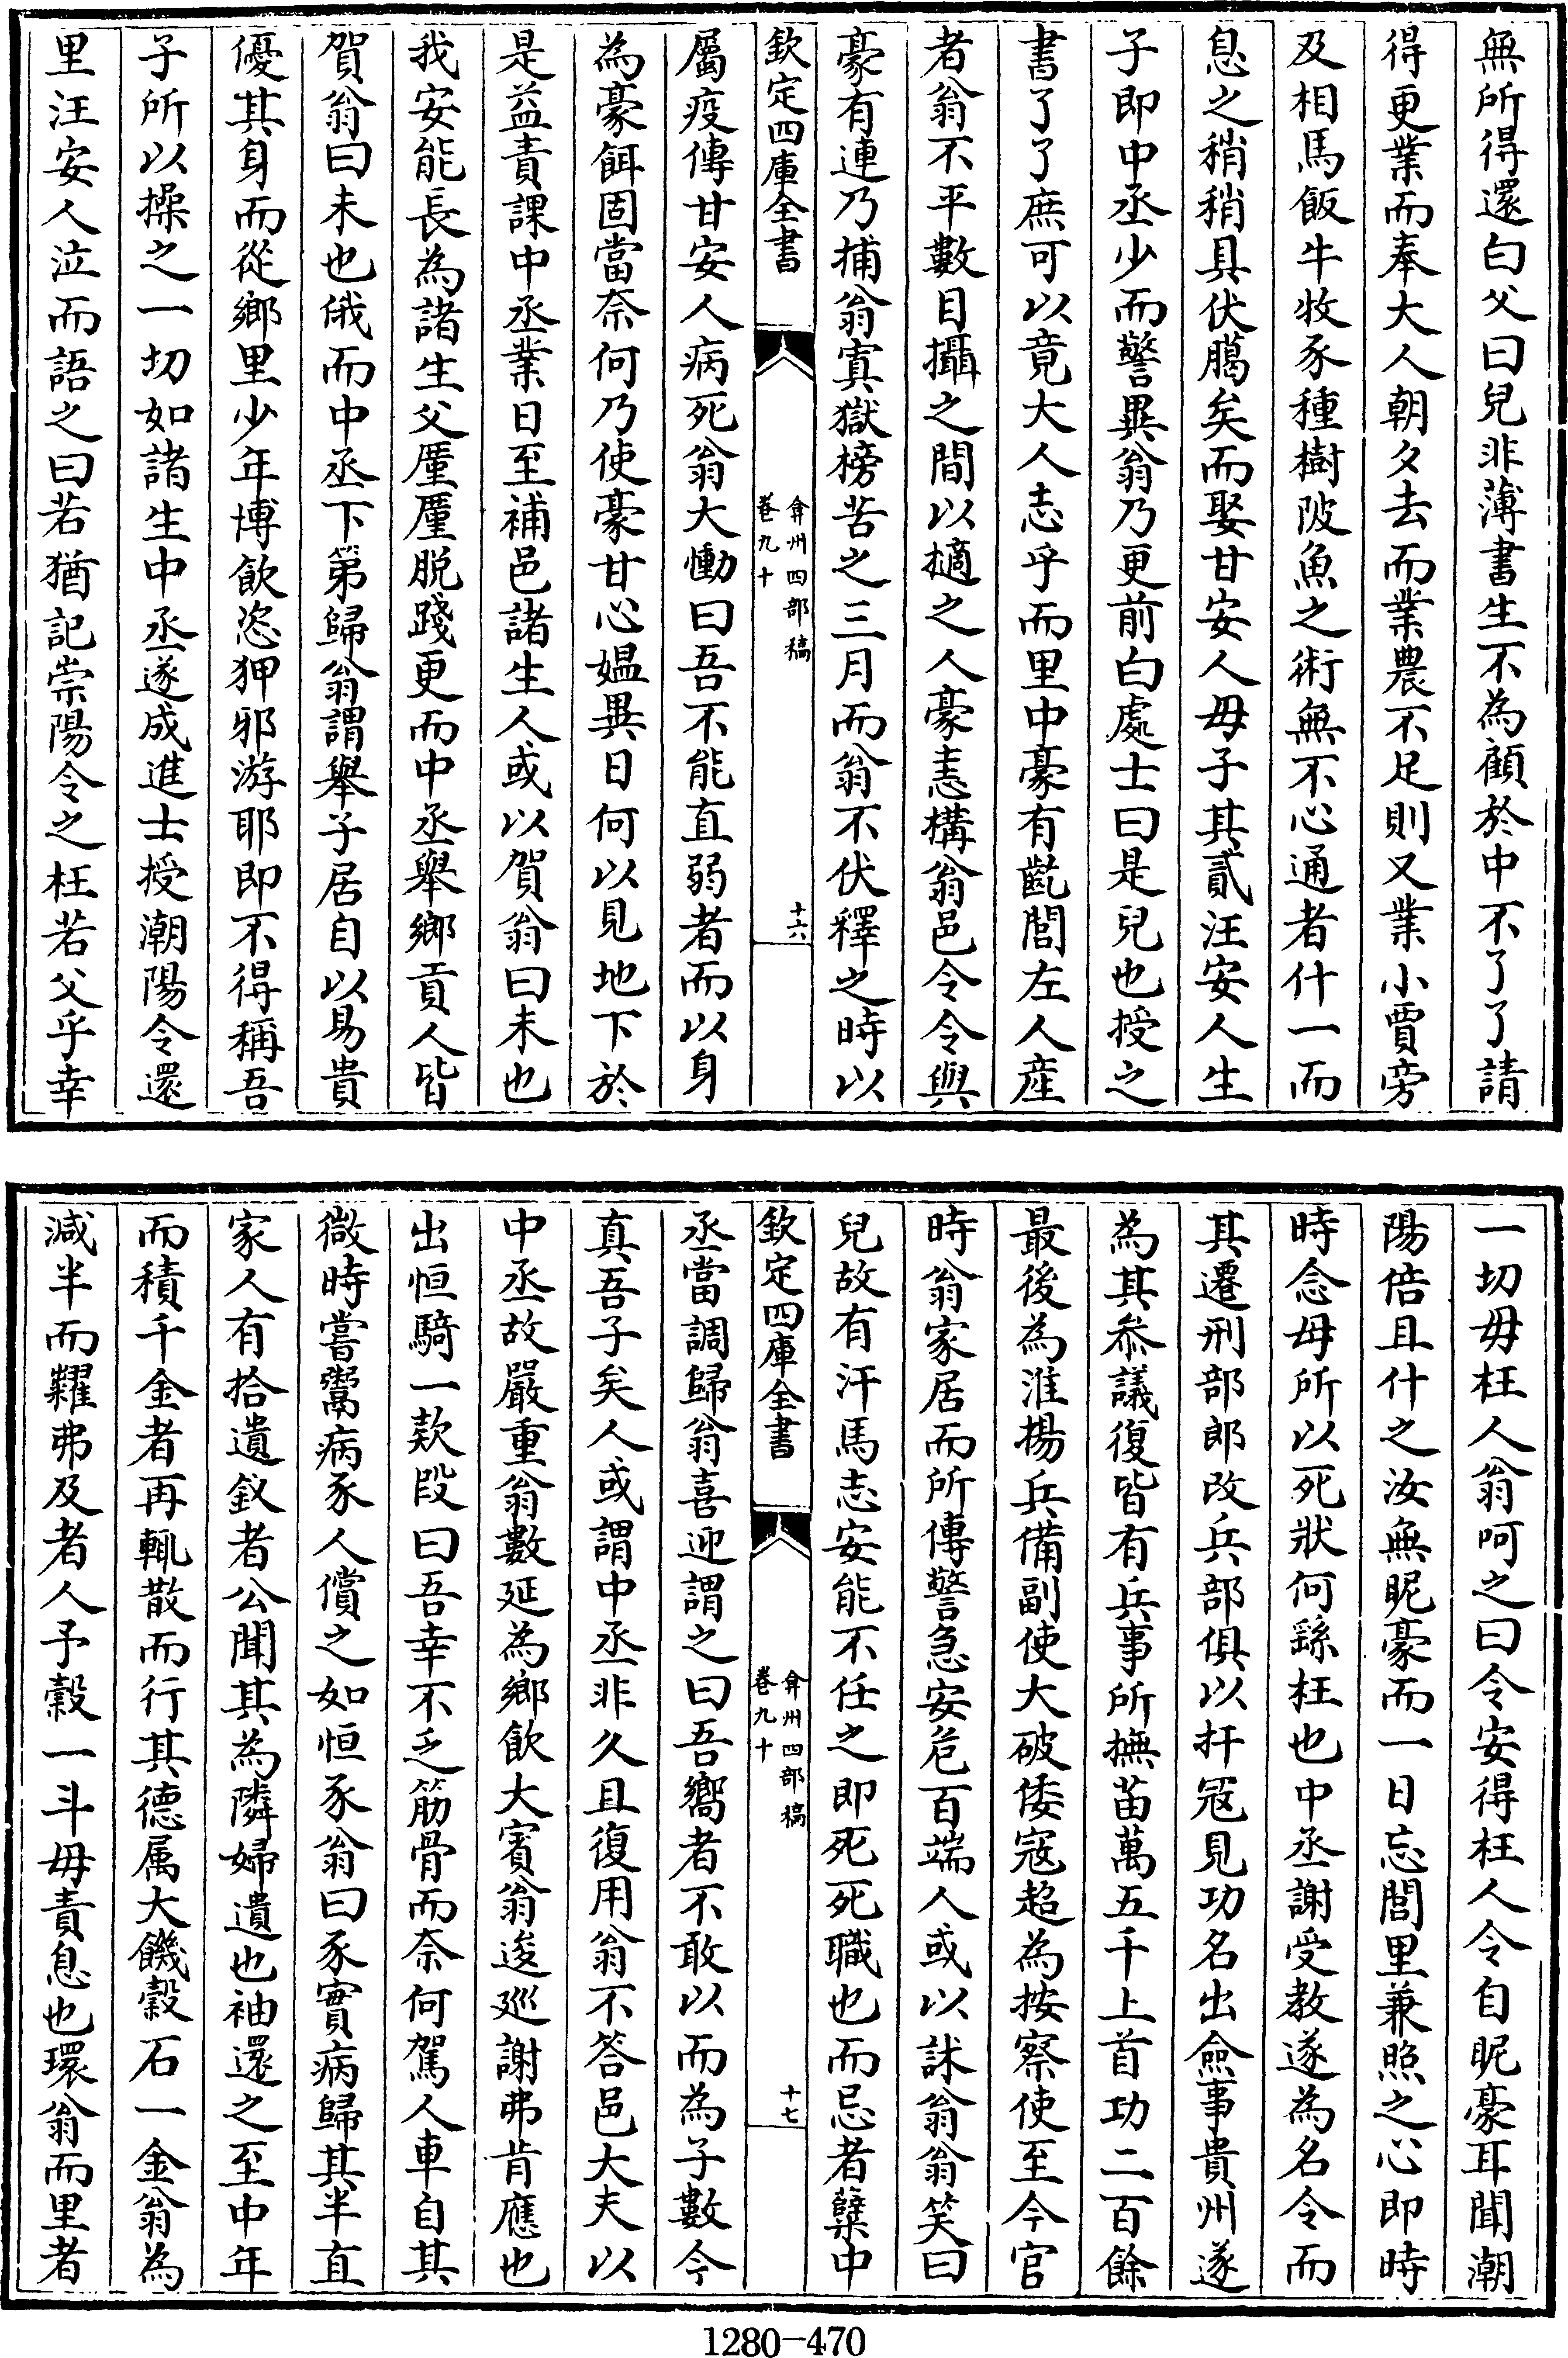 無所得還白父曰兒非薄書生不為顧於中不了了請
得更業而奉大人朝夕去而業農不足則又業小賈旁
及相馬飯牛牧豕種樹陂魚之術無不心通者什一而
息之稍稍具伏臈矣而娶甘安人毋子其貳汪安人生
子即中丞少而警異翁乃更前白處士曰是兒也授之
書了了庶可以竟大人志乎而里中豪有齮閭左人産
者翁不平數目攝之間以擿之人豪恚構翁邑令令與
豪有連乃捕翁寘獄榜苦之三月而翁不伏釋之時以
欽定四庫全書
弇州四部稿
卷九十
十六
屬疫傳甘安人病死翁大慟曰吾不能直弱者而以身
為豪餌固當奈何乃使豪甘心媪異日何以見地下於
是益責課中丞業日至補邑諸生人或以賀翁曰未也
我安能長為諸生父厪厪脱踐更而中丞舉鄉貢人皆
賀翁曰未也俄而中丞下第歸翁謂舉子居自以易貴
優其身而從鄉里少年博飲恣狎邪游耶即不得稱吾
子所以操之一切如諸生中丞遂成進士授潮陽令還
里汪安人泣而語之曰若猶記崇陽令之枉若父乎幸
一切毋枉人翁呵之曰令安得枉人令自昵豪耳聞潮
陽倍且什之汝無昵豪而一日忘閭里兼照之心即時
時念母所以死狀何繇枉也中丞謝受教遂為名令而
其遷刑部郎改兵部俱以扞冦見功名出僉事貴州遂
為其叅議復皆有兵事所撫苗萬五千上首功二百餘
最後為淮揚兵備副使大破倭寇超為按察使至今官
時翁家居而所傳警急安危百端人或以訹翁翁笑曰
兒故有汗馬志安能不任之即死死職也而忌者蘖中
欽定四庫全書
弇州四部稿
卷九十
十七
丞當調歸翁喜迎謂之曰吾嚮者不敢以而為子數今
真吾子矣人或謂中丞非久且復用翁不答邑大夫以
中丞故嚴重翁數延為鄉飲大賓翁逡廵謝弗肯應也
出恒騎一欵段曰吾幸不乏筋骨而奈何駕人車自其
微時嘗鬻病豕人償之如恒豕翁曰豕實病歸其半直
家人有拾遺釵者公聞其為隣婦遺也袖還之至中年
而積千金者再輒散而行其德属大饑穀石一金翁為
減半而糶弗及者人予穀一斗毋責息也環翁而里者
1280-470